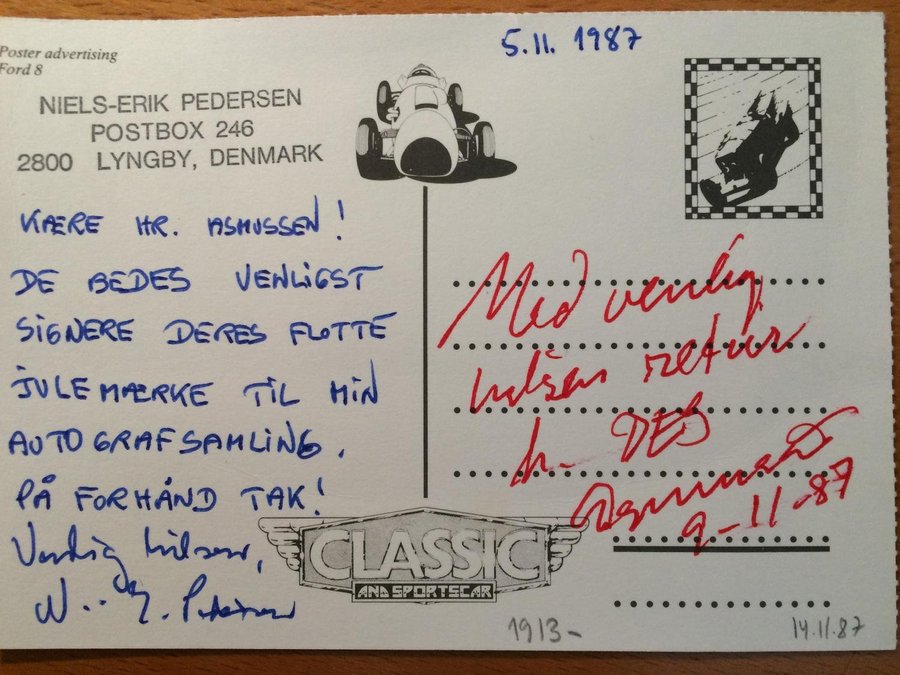 Poster advertising
Ford 8
5.11. 1987
NIELS-ERIK PEDERSEN
POSTBOX 246
2800 LYNGBY, DENMARK
KÆRE HR. ASMUSSEN!
DE BEDES VENLIGST
SIGNERE DERES FLOTTE
JULEMÆRKE TIL MIN
AUTOGRAFSAMLING.
PÅ FORHÅND TAK!
Venlig hilsen,
Med venlig
hilsen retur
DES
9-11-87
CLASSIC
AND SPORTSCAR
1913-
14.11.87